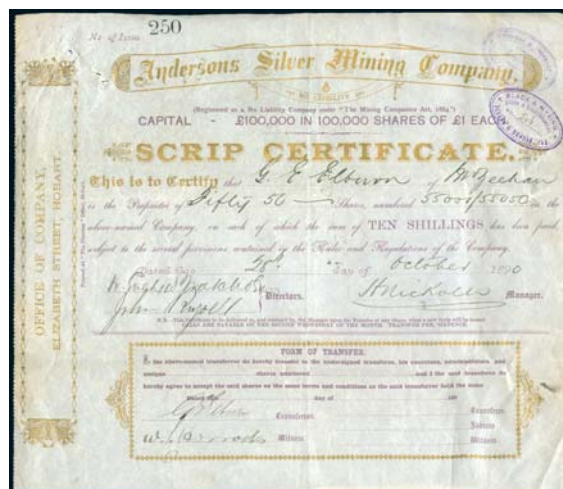 No of Issue 250
Andersons Silver Mining Company,
NO LIABILITY.
(Registered as a No Liability Company under "The Mining Companies Act, 1884.")
CAPITAL - £100,000 IN 100,000 SHARES OF £1 EACH
SCRIP CERTIFICATE.
This is to Certify that G. E. Elburn of Mt Zeehan
is the Proprietor of Fifty 50 Shares, numbered 55001/55050 in the
above-named Company, on each of which the sum of TEN SHILLINGS has been paid,
subject to the several provisions contained in the Rules and Regulations of the Company.
Dated this 28th day of October 1890
Directors.
Manager.
OFFICE OF COMPANY,
ELIZABETH STREET, HOBART.
FORM OF TRANSFER.
I, the above-named transferror do hereby transfer to the undersigned transferree, his executors, administrators, and
assigns shares numbered and I the said transferree do
hereby agree to accept the said shares on the same terms and conditions as the said transferror held the same
Dated this day of 18
Transferror.
Witness
Transferree
Address
Witness